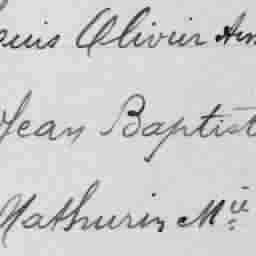 ouis Olivier Am
Jean Baptist
Mathurin M^ie